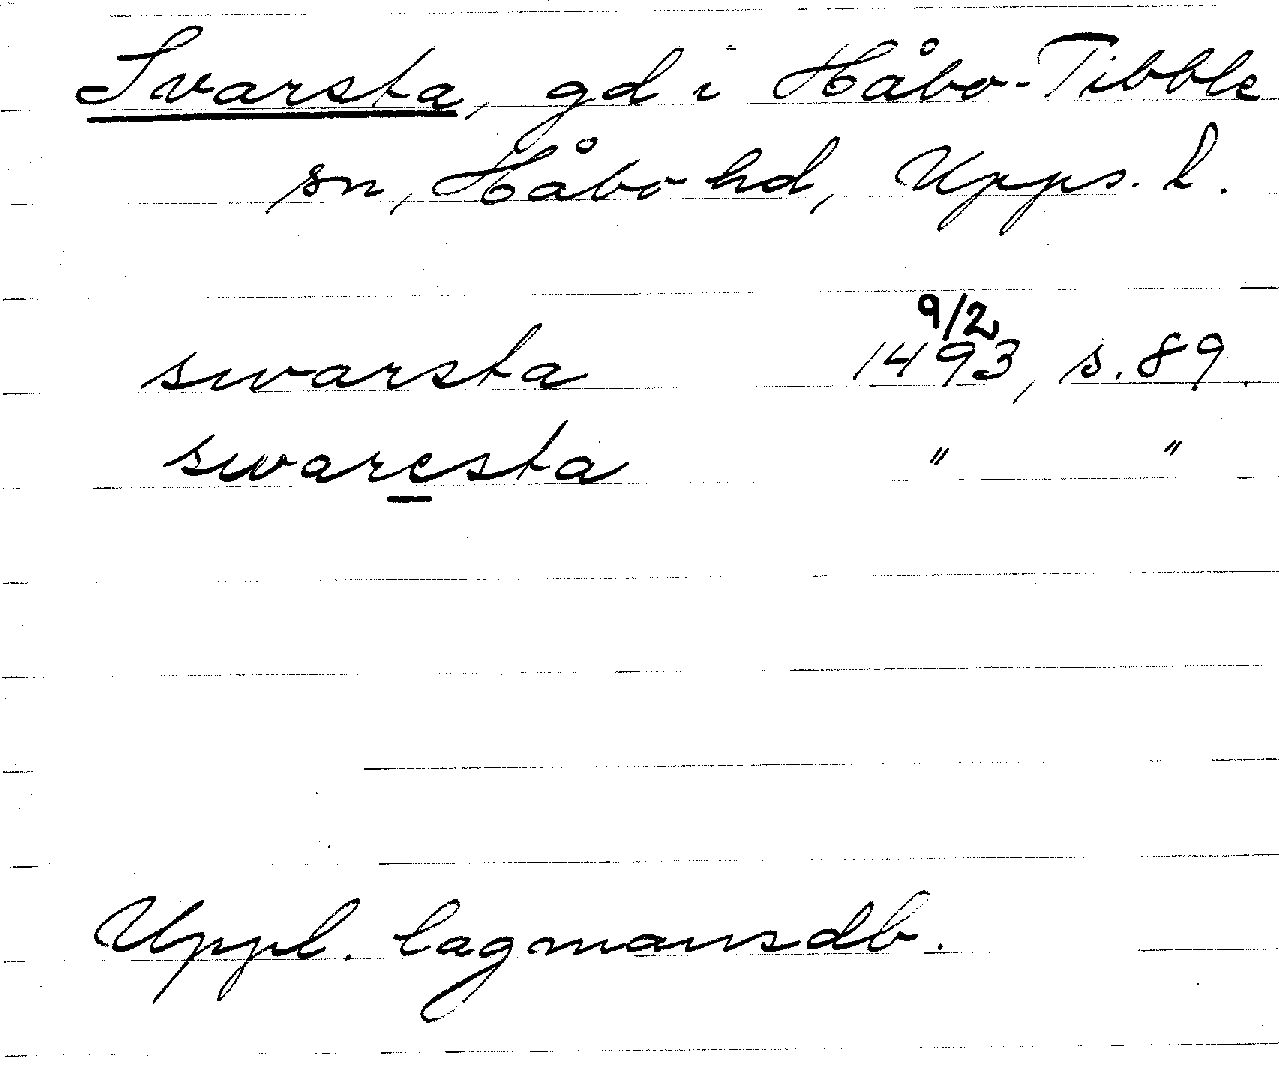 Svarsta, gd i Håbo-Tibble
sn, Håbo hd, Upps. l.
9/2
swarsta 1493, s. 89
swaresta " "
Uppl. lagmansdb.